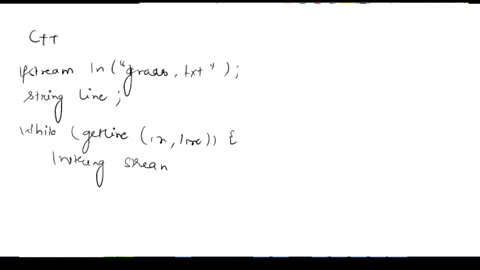 C++
ifstream in("grades.txt");
string line;
while (getline (in, line)) {